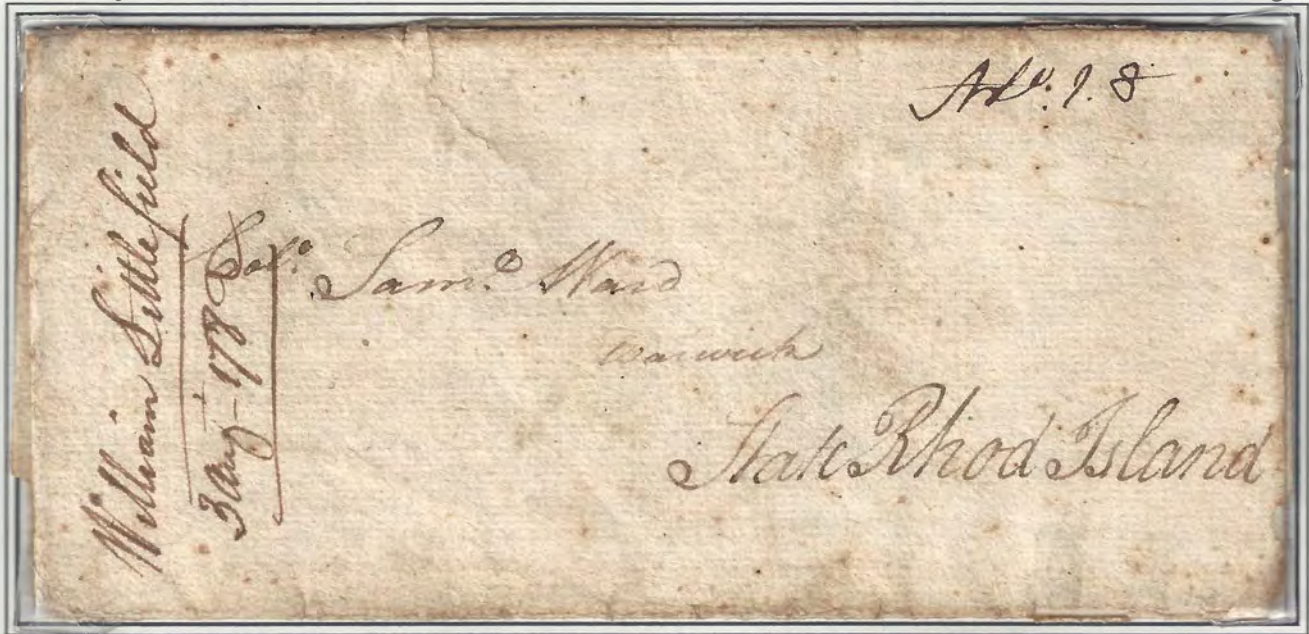 William Littlefield
3 Aug 1778
No. 1. 8
Colo. Saml. Ward
Warwick
State Rhod Island